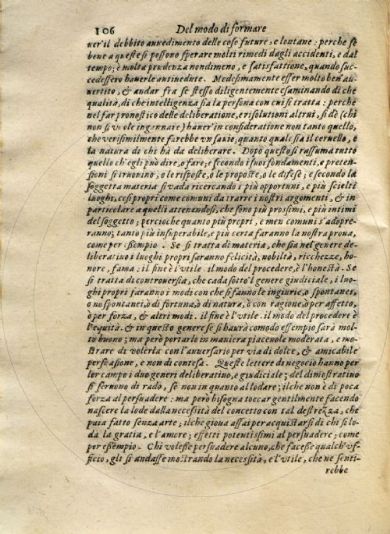 106 Del modo di formare
uer'il debbito auuedimento delle cose future, e lontane: perche se
bene a queste si possono sperare molti rimedi dagli accidenti, e dal
tempo; è molta prudenza nondimeno, e satisfattione, quando suc-
cedessero hauerle antiuedute. Medesimamente esser molto ben au-
uertito, & andar fra se stesso diligentemente esaminando di che
qualità, di che intelligenza sia la persona con cui si tratta: perche
nel far pronostico delle deliberatione, e risolutioni altrui, si dè (chi
non si vuole ingannare) hauer'in consideratione non tanto quello,
che verisimilmente farebbe vn sauio, quanto qual sia il ceruello, e
la natura di chi ha da deliberare. Dopo questo si rassuma tutto
quello ch'egli può dire, o fare; e secondo i suoi fondamenti, e preten-
sioni si truouino; o le risposte, o le proposte, o le difese; e secondo la
soggetta materia si vada ricercando i più opportuni, e più scielti
luoghi, così propri come comuni da trarre i nostri argomenti, & in
particolare a quelli attenendosi, che sono più prossimi, e più intimi
del soggetto; percioche quanto più propri, e men comuni s'adopre-
ranno; tanto più insuperabile, e più certa faranno la nostra proua,
come per essempio. Se si tratta di materia, che sia nel genere de-
liberatiuo i luoghi propri saranno felicità, nobiltà, ricchezze, ho-
nore, fama: il fine è l'vtile il modo del procedere è l'honestà. Se
si tratta di controuersia, che cada sotto'l genere giudiciale, i luo-
ghi propri saranno i modi con che si fanno le ingiurie, o spontanei,
o no spontanei, o di fortuna, o di natura, o con ragione, o per affetto,
o per forza, & altri modi. il fine è l'vtile. il modo del procedere è
l'equità. & in questo genere se si haurà comodo essempio sarà mol-
to buono; ma però portarlo in maniera piaceuole moderata, e mo-
strare di volerla con l'auuersario per via di dolce, & amicabile
persuasione, e non di contesa. Queste lettere di negocio hanno per
lor campo i duo generi deliberatiuo, e giudiciale; del dimostratiuo
si seruono di rado, se non in quanto al lodare; ilche non è di poca
forza al persuadere: ma però bisogna toccar gentilmente facendo
nascere la lode dalla necessità del concetto con tal destrezza, che
paia fatto senza arte; ilche gioua assai per acquistarsi di chi si lo-
da la gratia, e l'amore; effetti potentissimi al persuadere; come
per essempio. Chi volesse persuadere alcuno, che facesse qualch'vf-
ficio, gli si andasse mostrando la necessità, e l'vtile, che ne senti-
rebbe